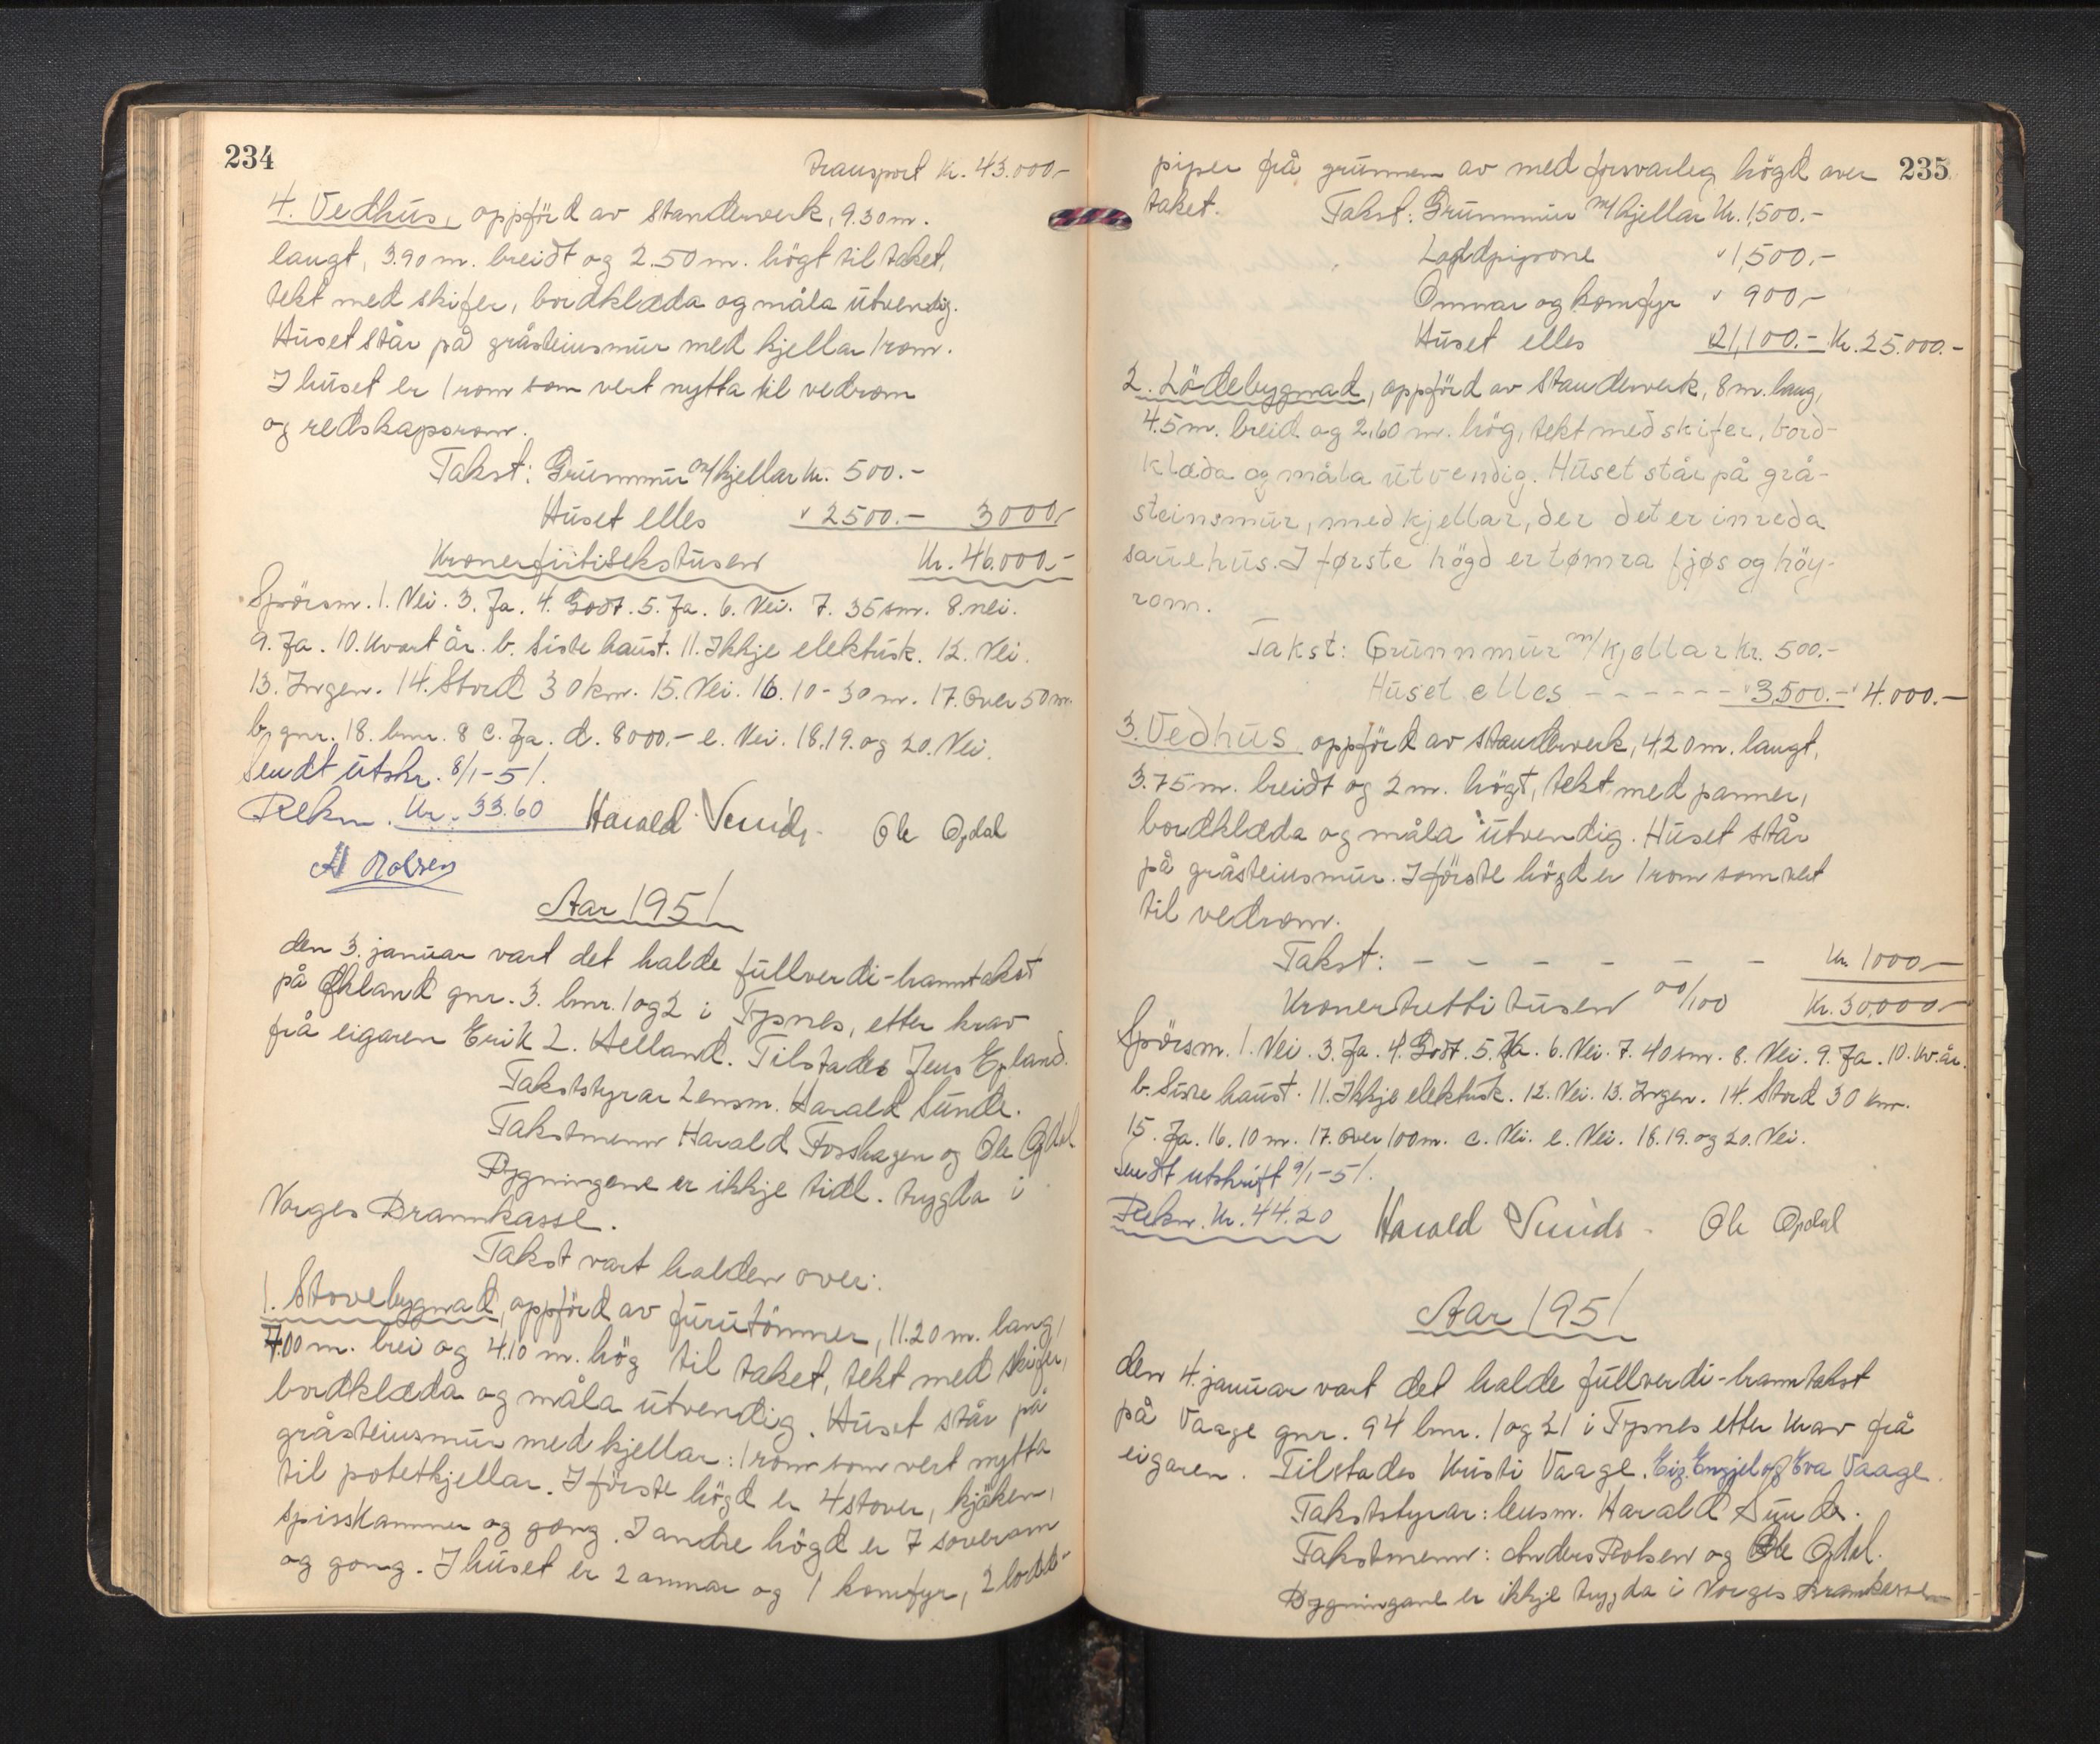 234
Transport Kr. 43.000,-
4. Vedhus, oppförd av standerverk, 9.30 m.
langt, 3.90 m. breidt og 2.50 m. högt til taket,
tekt med skifer, bordklæda og måla utvendig.
Huset står på gråsteinsmur med kjellar 1 rom.
I huset er 1 rom som vert nytta til vedrom
og redskapsrom.
Takst: Grunnmur m/kjellar kr. 500.-
Huset elles " 2500.- 3000,-
Kronerförtisekstusen Kr. 46.000.-
Spörsm. 1. Nei. 3. Ja. 4. Godt. 5. Ja. 6. Nei. 7. 35 sm. 8. nei.
9. Ja. 10. Kvart år. b. Siste haust. 11. Ikkje elektrisk. 12. Nei.
13. Ingen. 14. Stord 30 km. 15. Nei. 16. 10-30 m. 17. Over 50 m.
b. gnr. 18. bnr. 8 c. Ja. d. 8000,- e. Nei. 18. 19. og 20. Nei.
Sendt utskr. 8/1-51.
Rekn. Kr. 33.60 Harald Sunde. Ole Opdal
A Rolsen
Aar 1951
den 3. januar vart det halde fullverdi-branntakst
på Økland gnr. 3. bnr. 1 og 2 i Tysnes, etter krav
frå eigaren Erik L. Helland. Tilstades Jens Epland.
Takststyrar Lensm. Harald Sunde.
Takstmenn Harald Fosshagen og Ole Opdal
Bygningene er ikkje tidl. trygda i
Norges Brannkasse.
Takst vart halden over:
1. Stovebygnad, oppförd av furutömmer, 11.20 m. lang,
7.00 m. brei og 4.10 m. hög til taket, tekt med skifer,
bordklæda og måla utvendig. Huset står på
gråsteinsmur med kjellar: 1 rom som vert nytta
til potetkjellar. I förste högd er 4 stover, kjöken,
spisskammer og gong. I andre högd er 7 soverom
og gong. I huset er 2 omnar og 1 komfyr, 2 lodd-
235
piper frå grunnen av med forsvarleg högd over
taket. Takst: Grunnmur m/kjellar Kr. 1,500.-
Loddpipone " 1,500.-
Omnar og komfyr " 900,-
Huset elles " 21,100.- Kr. 25.000.-
2. Lödebygnad, oppförd av standerverk, 8 m. lang,
4.5 m. breid og 2,60 m. hög, tekt med skifer, bord-
klæda og måla utvendig. Huset står på grå-
steinsmur, med kjellar, der det er inreda
sauehus. I første högd er tømra fjøs og höy-
rom.
Takst: Grunnmur m/kjellar Kr. 500.-
Huset elles - - - - - - " 3,500.- " 4.000.-
3. Vedhus oppförd av standerverk, 4,20 m. langt,
3.75 m. breidt og 2 m. högt, tekt med panner,
bordklæda og måla utvendig. Huset står
på gråsteinsmur. I förste högd er 1 rom som vert
til vedrom.
Takst: - - - - - - Kr. 1000,-
Kronertrettitusen 00/100 Kr. 30,000,-
Spörsm. 1. Nei. 3. Ja. 4. Godt. 5. Ja. 6. Nei. 7. 40 sm. 8. Nei. 9. Ja. 10. Kv. år.
b. Siste haust. 11. Ikkje elektrisk. 12. Nei. 13. Ingen. 14. Stord 30 km.
15. Ja. 16. 10 m. 17. Over 100 m. c. Nei. e. Nei. 18. 19. og 20. Nei.
Sendt utskrift 9/1-51.
Rekn. Kr. 44.20 Harald Sunde. Ole Opdal
Aar 1951
den 4. januar vart det halde fullverdi-branntakst
på Vaage gnr. 94 bnr. 1 og 21 i Tysnes etter krav frå
eigaren. Tilstades Kristi Vaage. Eig. Engjel og Eva Vaage.
Takststyrar: lensm. Harald Sunde.
Takstmenn: Anders Rolsen og Ole Opdal.
Bygningane er ikkje trygda i Norges Brannkasse